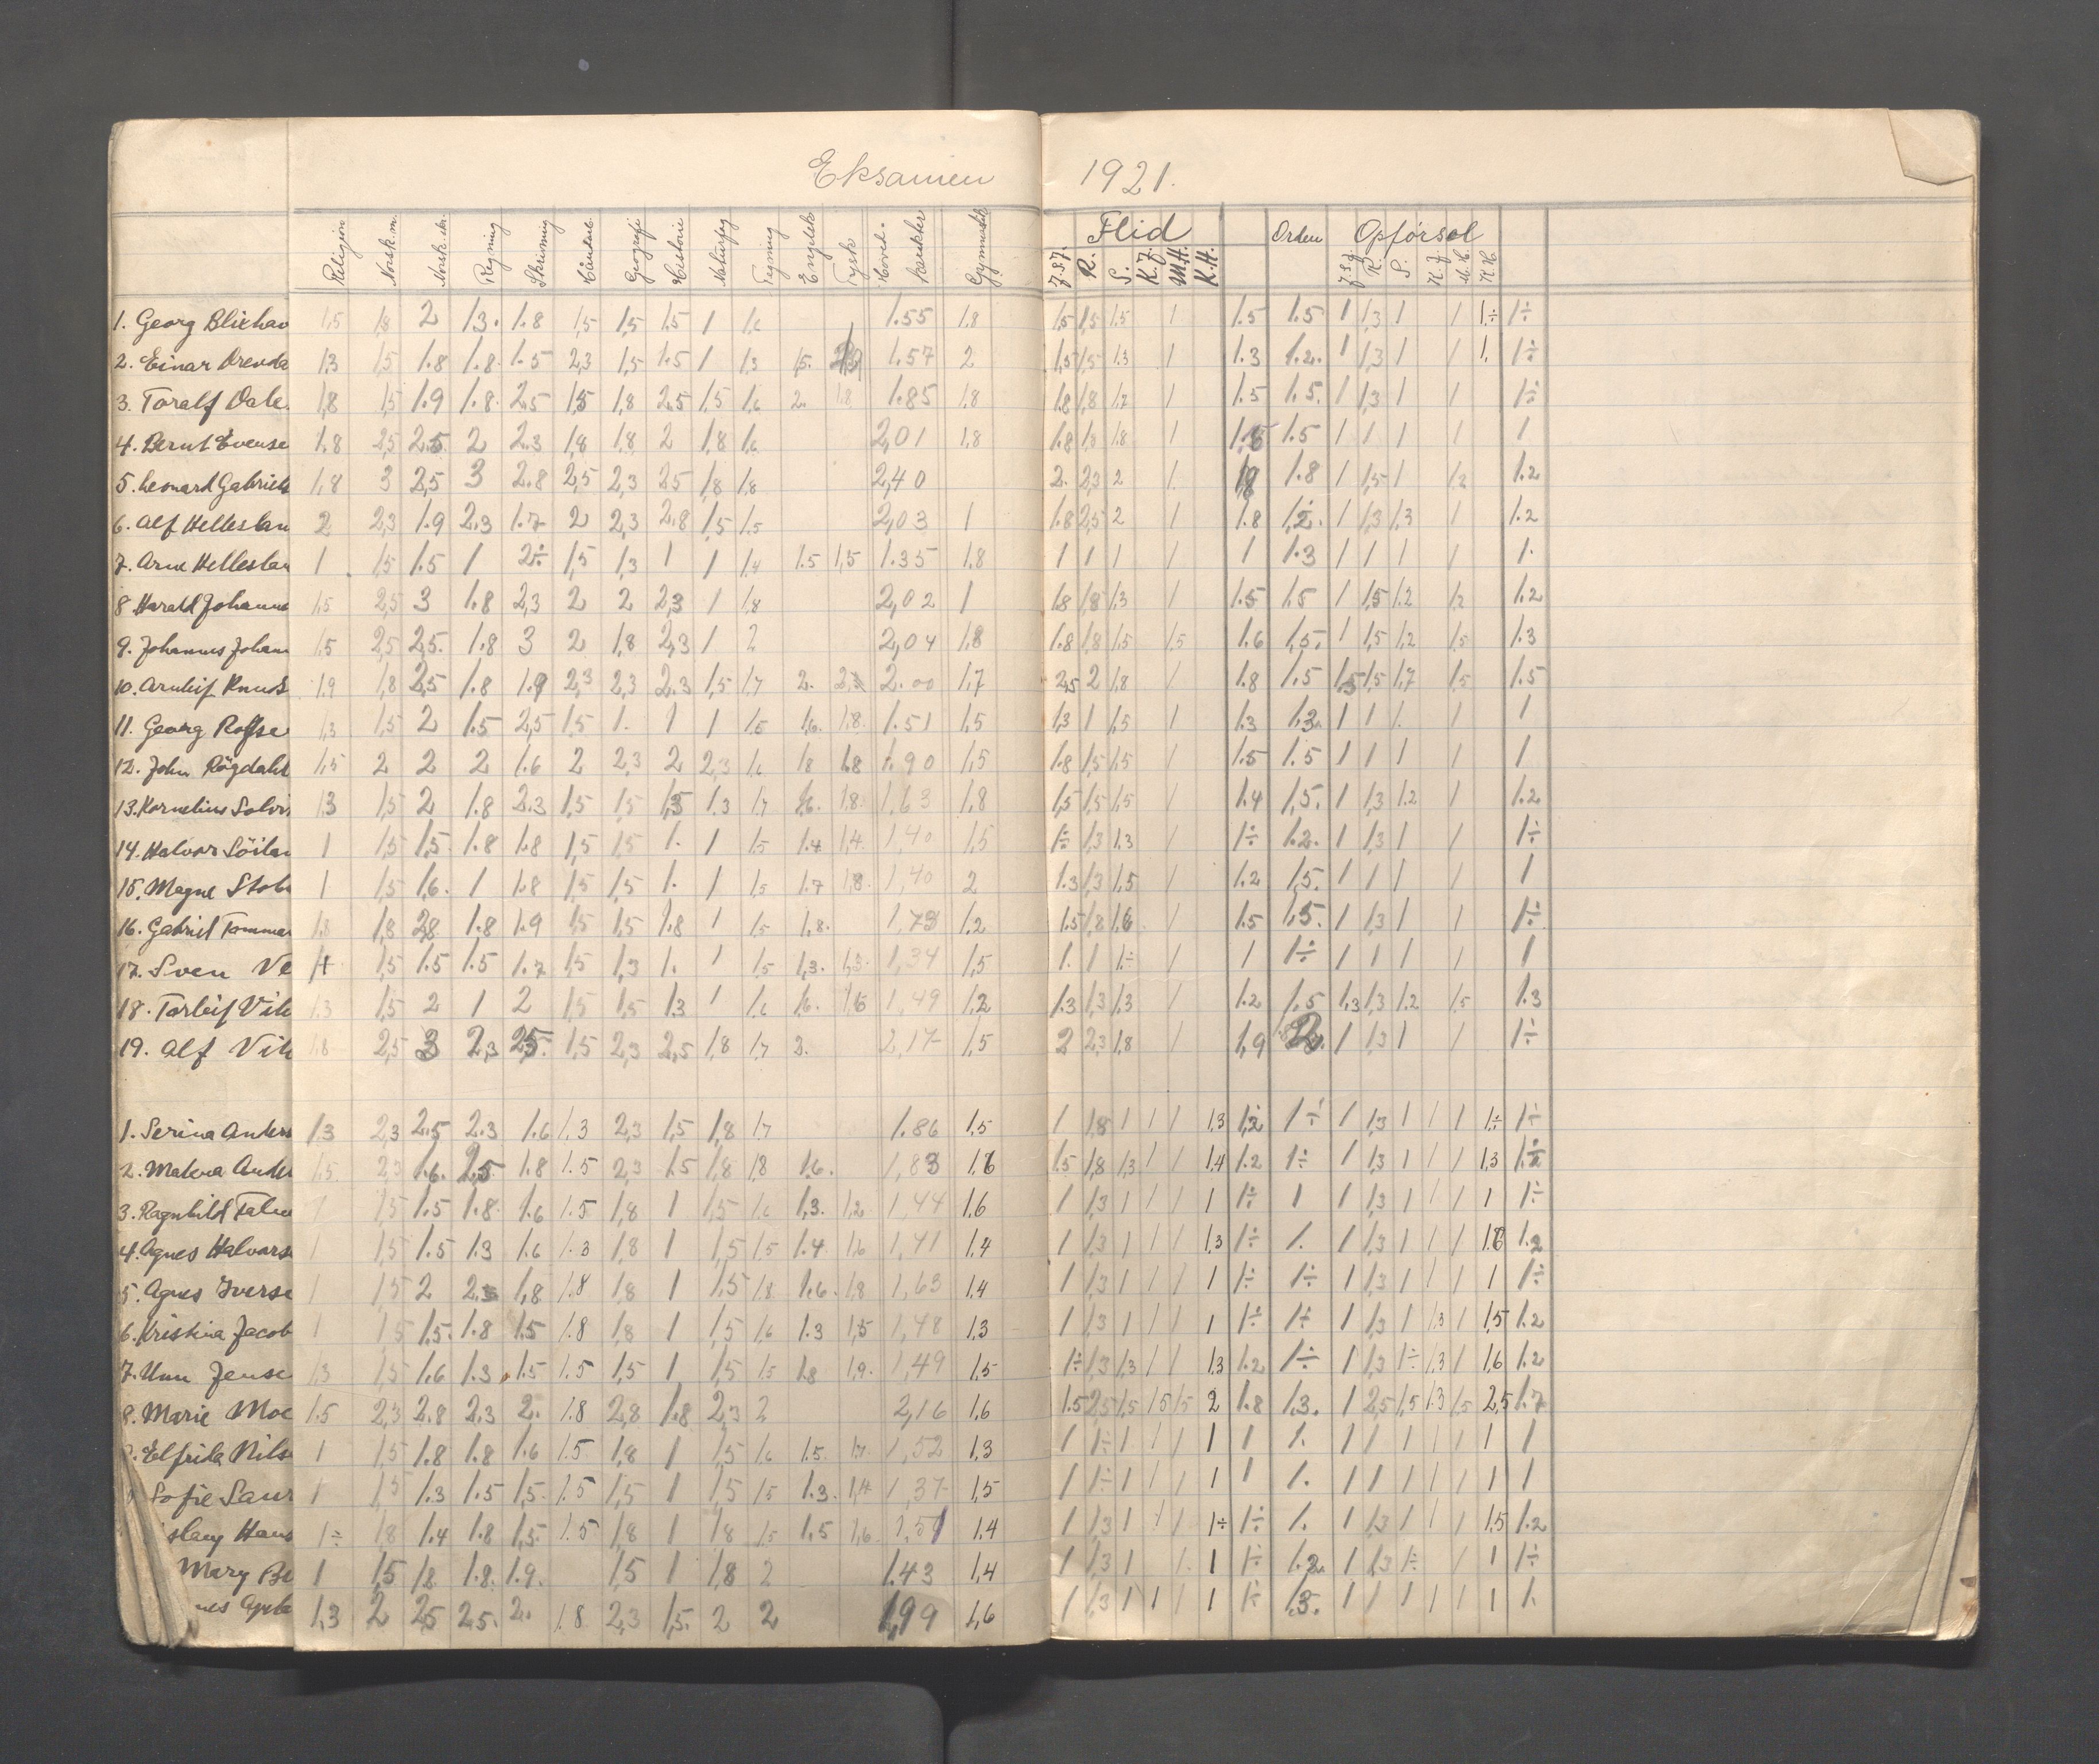 Eksamen 1921.
Religion Norsk m. Norsk skr. Regning Skrivning Håndarb. Geografi Historie Naturfag Tegning Engelsk Tysk Hoved- karakter Gymnastik Flid Orden Opförsel
J.S.J. R. S. K.J. M.H. K.H. J.S.J. R. S. K.J. M.H. K.H.
1. Georg Blixhav 1,5 1,8 2 1.3. 1.8 1,5 1,5 1.5 1 1,6 1.55 1.8 1,5 1,5 1,5 1 1.5 1.5 1 1,3 1 1 1.÷ 1÷
2. Einar 1,3 1,5 1.8 1.8. 1.5 2,3 1,5 1.5 1 1,3 1,5. 1.57 2 1,5 1,5 1.3 1 1.3 1.2. 1 1,3 1 1 1. 1÷
3. Toralf Dale. 1,8 1,5 1.9 1.8. 2,5 1,5 1,8 2.5 1,5 1,6 2. 1.8 1.85 1.8 1.8 1,8 1,7 1 1.5 1.5. 1 1,3 1 1 1÷
4. Bernt Evense 1.8 2,5 2.5 2 2.3 1,8 1.8 2 1,8 1,6 2,01 1,8 1.8 1,3 1,8 1 1,5 1.5 1 1 1 1 1
5. Leonard Gabriels 1,8 3 2,5 3 2.8 2,5 2,3 2,5 1,8 1,8 2,40 2. 2,3 2 1 1,8 1.8 1 1,5 1 1,2 1.2
6. Alf Helleslan 2 2,3 1.9 2.3 1.7 2 2,3 2.8 1,5 1.5 2,03 1 1.8 2,5 2 1 1.8 1,2. 1 1,3 1,3 1 1.2
7. Arne Helleslan 1 1,5 1.5 1 2÷ 1,5 1,3 1 1 1,4 1.5 1,5 1.35 1,8 1 1 1 1 1 1.3 1 1 1 1 1.
8 Harald Johanne 1,5 2,5 3 1.8 2,3 2 2 2,3 1 1,8 2,02 1 1.8 1,8 1,3 1 1.5 1.5 1 1,5 1.2 1,2 1.2
9. Johannes Johan 1,5 2,5 2,5. 1.8 3 2 1,8 2,3 1 2 2,04 1,8 1.8 1,8 1,5 1,5 1.6 1,5. 1 1,5 1,2 1,5 1.3
10. Arnleif Knuds 1,9 1,8 2,5 1.8 1.9 2,3 2,3 2.3 1,5 1,7 2. 2.00 1,7 2,5 2 1,8 1 1.8 1.5 1,5 1,5 1,7 1,5 1.5
11. Georg 1,3 1,5 2 1.5 2,5 1,5 1. 1 1 1,5 1,6. 1,8. 1.51 1,5 1,3 1 1,5 1 1.3 1.3. 1 1 1. 1 1
12. John Rögdahl 1,5 2 2 2 1.6 2 2,3 2 2,3 1,6 1,8 1.8 1.90 1,5 1.8 1,5 1,5 1 1.5 1.5 1 1 1 1 1
13. Kornelius Solvi 1,3 1,5 2 1.8 2.3 1,5 1,5 1,5 1.3 1,7 1,6. 1,8. 1,63 1.8 1,5 1,5 1,5 1 1.4 1,5. 1 1,3 1.2 1 1.2
14. Halvor Söilan 1 1,5 1,5. 1.8 1.8 1,5 1,5 1. 1 1,5 1.4 1,4. 1,40 1,5 1÷ 1,3 1,3 1 1÷ 1.2. 1 1,3 1 1 1÷
15. Magne 1 1,5 1,6. 1 1.8 1,5 1,5 1. 1 1,5 1.7 1,8. 1,40 2 1.3 1,3 1,5 1 1.2 1,5. 1 1 1 1 1
16. Gabriel Tomma 1,8 1,8 2,8 1.8 1.9 1,5 1,5 1.8 1 1,5 1,8. 1,73 1,2 1.5 1,8 1,6 1 1.5 1,5. 1 1,3 1 1 1÷
17. Sven Ve 1,5 1.5 1.5 1.7 1,5 1,3 1. 1 1,5 1,3. 1,3. 1,34 1,5 1. 1 1÷ 1 1÷ 1 1 1 1 1
18. Torleif Vik 1.3 1,5 2 1 2 1,5 1,5 1,3 1 1,6 1,6. 1,6 1,49 1,2 1.3 1,3 1,3 1 1.2 1.5 1,3 1,3 1.2 1,5 1.3
19. Alf Vik 1,8 2,5 3 2,3 2,5. 1,5 2,3 2,5 1,8 1,7 2. 2,17 1,5 2 2,3 1,8 1 1,9 2. 1 1,3 1 1 1÷
1. Serina Anders 1.3 2,3 2.5 2.3 1.6 1,3 2,3 1,5 1,8 1,7 1.86 1,5 1 1,8 1 1 1 1,3 1,2 1÷ 1 1,3 1 1 1 1÷ 1÷
2. Malena Ander 1,5 2,3 1.6. 2,5. 1.8 1.5 2,3 1.5 1,8 1,8 1,6. 1,83 1,6 1.5 1,8 1,3 1 1 1,4 1.2 1÷ 1 1,3 1 1 1 1,3 1.÷
3. Ragnhild 1 1,5 1.5 1.8. 1.6 1.5 1,8 1 1,5 1,6 1,3. 1,2 1,44 1,6 1 1,3 1 1 1 1 1÷ 1 1 1,3 1 1 1 1 1÷
4. Agnes Halvorse 1 1,5 1.5 1.3 1.6 1.3 1,8 1 1,5 1,5 1.4. 1,6 1,41 1,4 1 1,3 1 1 1 1,3 1÷ 1. 1 1,3 1 1 1 1.6 1.2
5. Agnes Iverse 1 1,5 2 2.3 1,8 1.8 1,8 1 1,5 1,8 1,6. 1,8 1,63 1,4 1 1,3 1 1 1 1 1÷ 1÷ 1 1,3 1 1 1 1 1÷
6. Kristina Jacob 1 1,5 1,5. 1.8 1.5 1.8 1,8 1 1,5 1,6 1.3 1,5 1,48 1,3 1 1,3 1 1 1 1 1÷ 1÷ 1 1,3 1 1,3 1 1,5 1.2
7. Unn Jense 1,3 1,5 1.6 1.3 1.5 1.5 1,5 1 1,5 1,5 1,8 1,9. 1,49 1,5 1÷ 1,3 1,3 1 1 1,3 1.2 1÷ 1 1,3 1÷ 1,3 1 1,6 1.2
8. Marie Moe 1.5 2,3 2.8 2.3 2. 1.8 2,8 1.8 2,3 2 2,16 1,6 1.5 2,5 1,5 1,5 1,5 2 1.8 1.3. 1 2,5 1,5 1.3 1,5 2,5 1.7
Elfrida Nils 1 1,5 1.8 1.8 1.6 1.5 1,8 1 1,5 1,6 1.5. 1,7. 1,52 1,3 1 1÷ 1 1 1 1 1 1. 1 1 1 1 1 1 1
Sofie Saur 1 1,5 1.3 1.5 1,5. 1.5 1,5 1 1,5 1,5 1.3. 1,4 1,37 1,5 1 1÷ 1 1 1 1 1 1. 1 1 1 1 1 1 1
slaug Hans 1÷ 1,8 1.4 1.8 1,5. 1.5 1,8 1 1,8 1,5 1,5 1,6. 1,51 1.4 1 1,3 1 1 1 1÷ 1÷ 1. 1 1,3 1 1 1 1,5 1.2
Mary Be 1 1,5 1,8 1.8. 1.9. 1,5 1 1,8 2 1.43 1,4 1 1,3 1 1. 1 1÷ 1.2. 1 1,3 1÷ 1 1 1÷
1,3 2 2,5 2,5. 2. 1.8 2,3 1,5. 2 2 1,99 1,6 1 1,3 1 1 1 1 1÷ 1,3. 1 1 1 1 1 1 1.